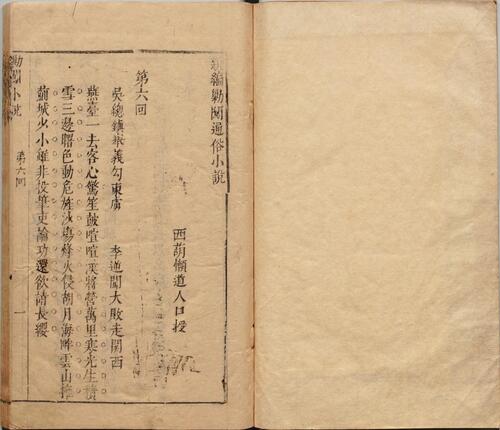 新編勦闖通俗小說
西葫懶道人口授
第六回
吳總鎮報義勾東虜 李逆闖大敗走關西
燕臺一去客心驚笙鼓喧喧漢將營萬里寒光生積
雪三邊曙色動危旌沙場烽火侵胡月海畔雲山擁
薊城少小雖非投筆吏論功還欲請長纓
勦闖小說 第六回 一